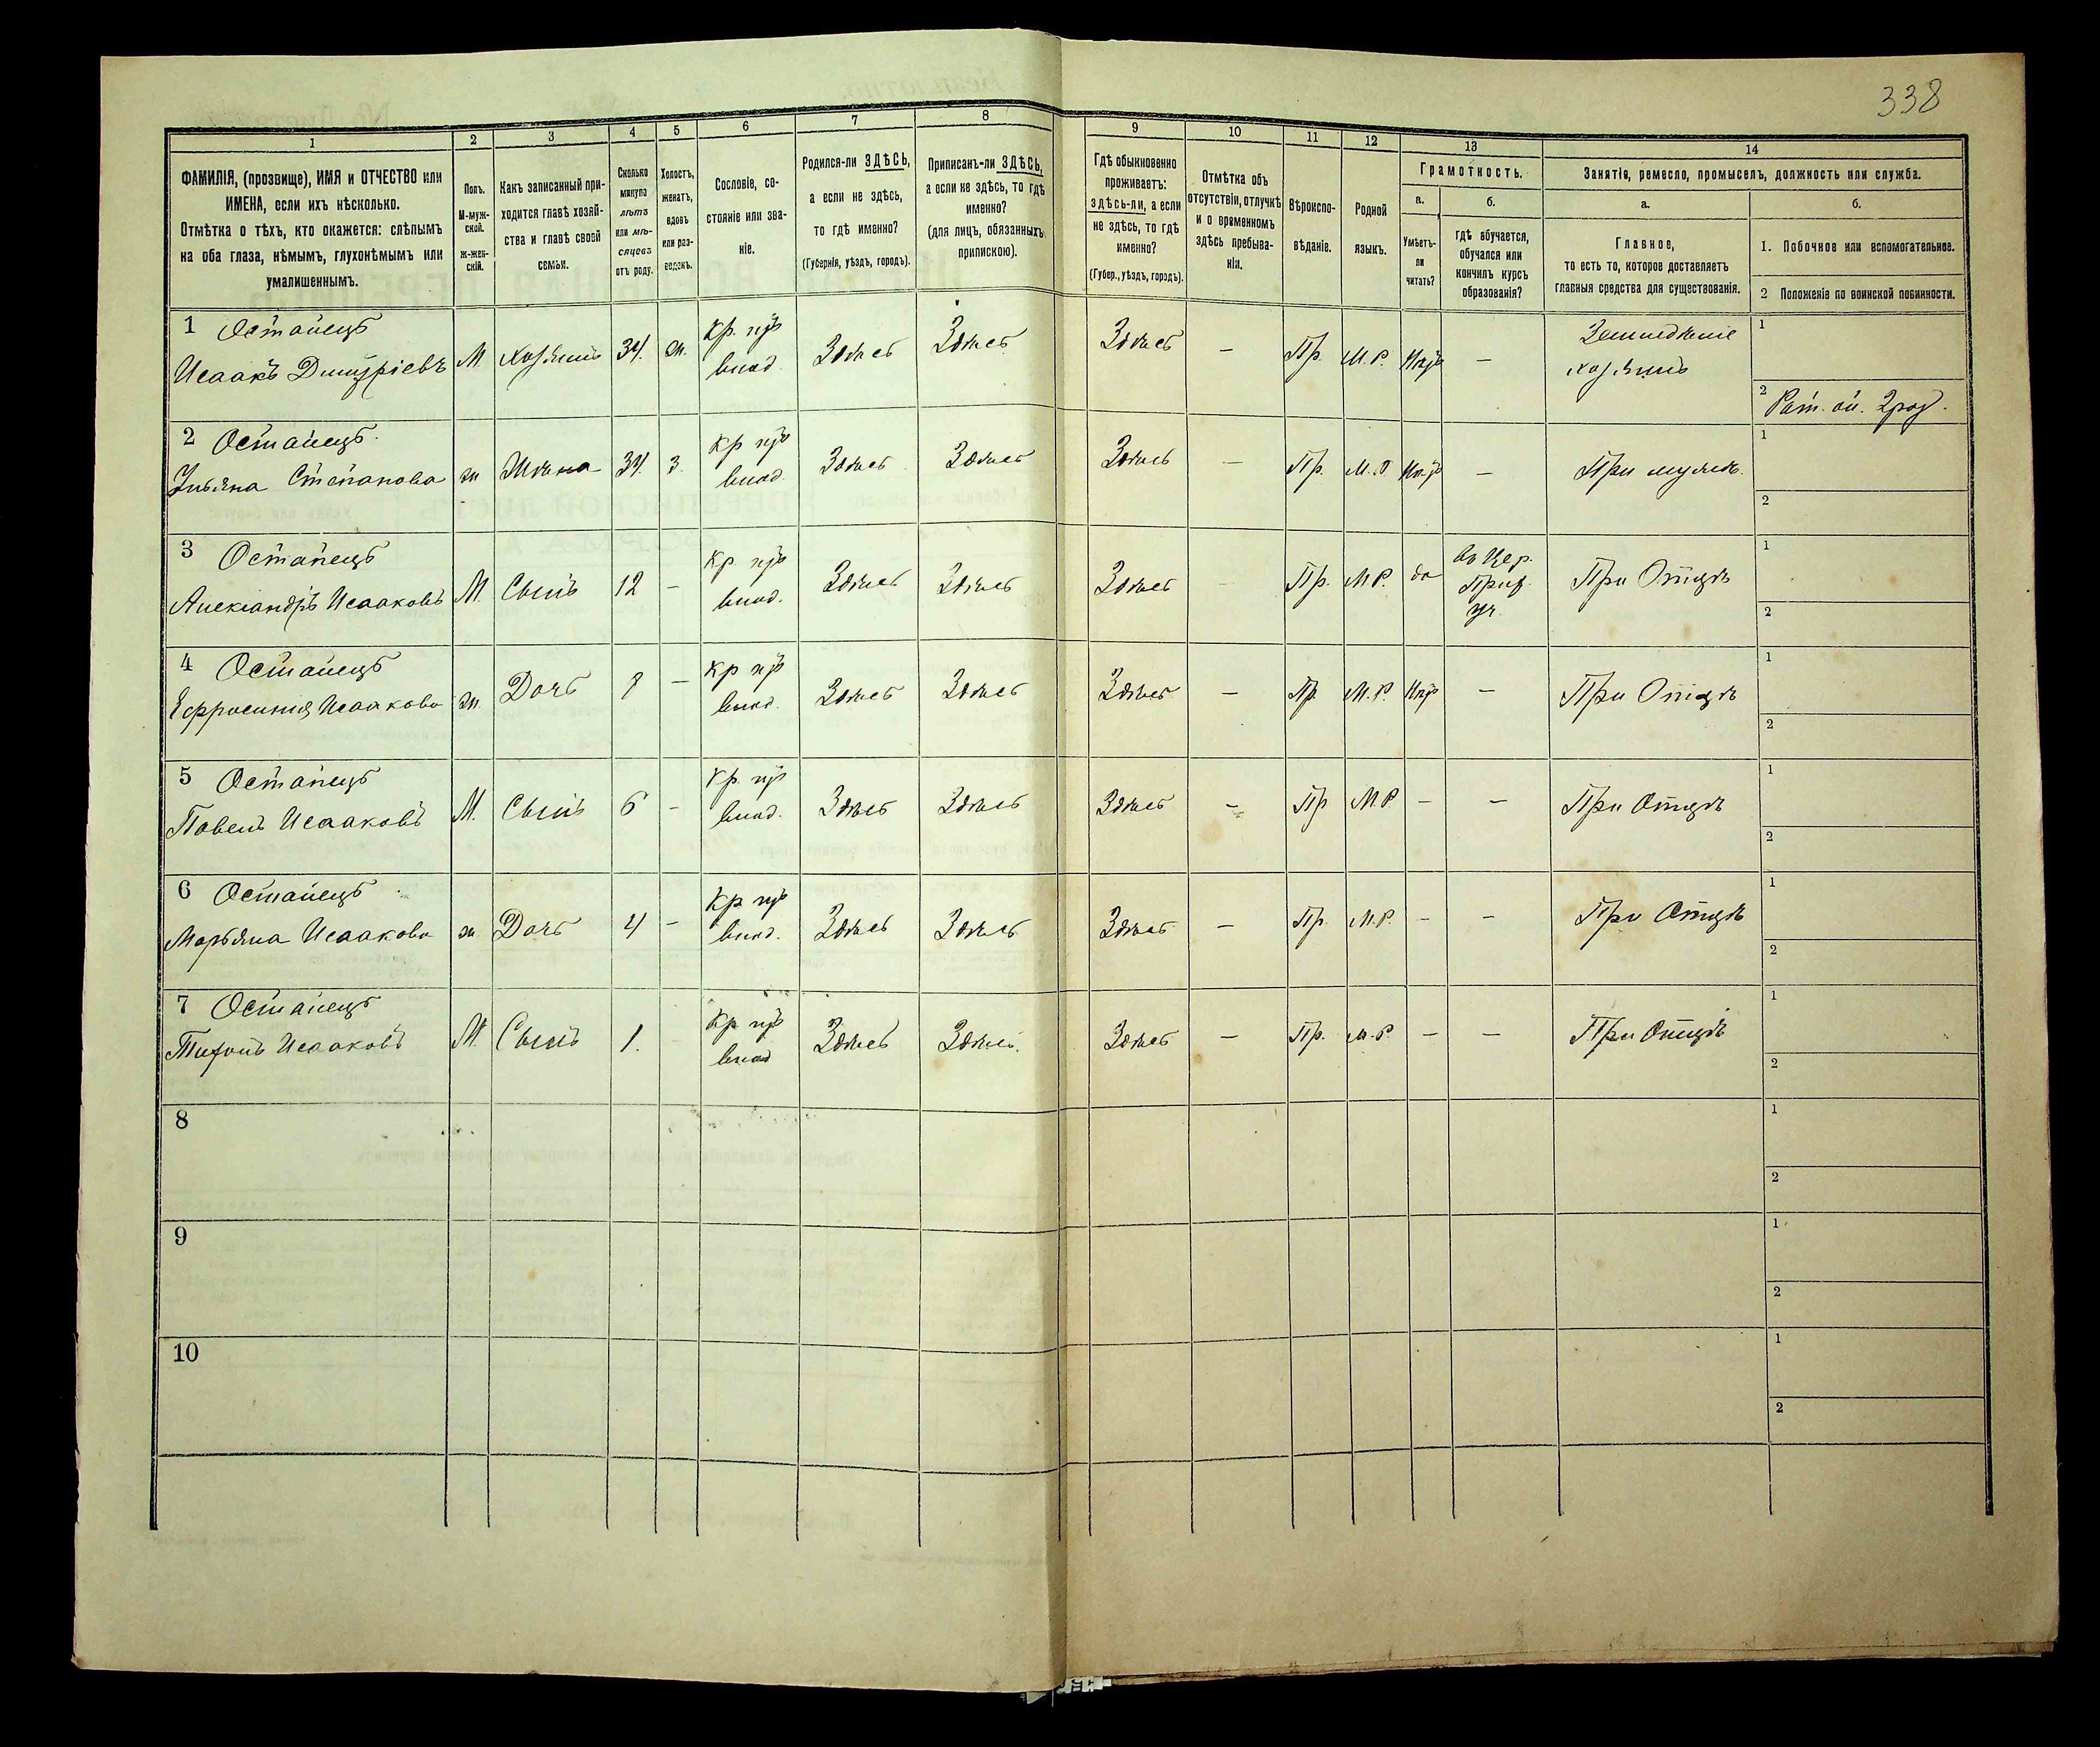 338
1 2 3 4 5 6 7 8 9 10 11 12 13 14
ФАМИЛІЯ, (прозвище), ИМЯ и ОТЧЕСТВО или
ИМЕНА, если ихъ нѣсколько.
Отмѣтка о тѣхъ, кто окажется: слѣпымъ
на оба глаза, нѣмымъ, глухонѣмымъ или
умалишеннымъ.
Полъ.
М-муж-
ской.
Ж-жен-
скій.
Какъ записанный при-
ходится главѣ хозяй-
ства и главѣ своей
семьи.
Сколько
минуло
лѣтъ
или мѣ-
сяцевъ
отъ роду.
Холостъ,
женатъ,
вдовъ
или раз-
веденъ.
Сословіе, со-
стояніе или зва-
ніе.
Родился-ли ЗДѢСЬ,
а если не здѣсь,
то гдѣ именно?
(Губернія, уѣздъ, городъ).
Приписанъ-ли ЗДѢСЬ,
а если не здѣсь, то гдѣ
именно?
(для лицъ, обязанныхъ
припискою).
Гдѣ обыкновенно
проживаетъ:
здѣсь-ли, а если
не здѣсь, то гдѣ
именно?
(Губер., уѣздъ, городъ).
Отмѣтка объ
отсутствіи, отлучкѣ
и о временномъ
здѣсь пребыва-
ніи.
Вѣроиспо-
вѣданіе.
Родной
языкъ.
Грамотность.
а.
Умѣетъ-
ли
читать?
б.
гдѣ обучается,
обучался или
кончилъ курсъ
образованія?
Занятіе, ремесло, промыселъ, должность или служба.
а.
Главное,
то есть то, которое доставляетъ
главныя средства для существованія.
б.
1. Побочное или вспомогательное.
2 Положеніе по воинской повинности.
1 Остапецъ
Исаакъ Дмитріевъ М. хозяинъ 34. ж. Кр. Здѣсь Здѣсь Здѣсь — Пр. М.Р. — Земледѣліе
хозяинъ
1
2 Рат. оп. 2 раз.
2 Остапецъ
Ульяна Степанова ж Жена 34. З. Кр Здѣсь Здѣсь Здѣсь — Пр. М.Р — При мужѣ.
1
2
3 Остапецъ
Александръ Исааковъ М. Сынъ 12 — Кр. Здѣсь Здѣсь Здѣсь — Пр. М.Р. да въ Цер.
Прих.
уч. При Отцѣ
1
2
4 Остапецъ
Ефросинія Исаакова ж. Дочь 8 — Кр Здѣсь Здѣсь Здѣсь — Пр. М.Р. — При Отцѣ
1
2
5 Остапецъ
Павелъ Исааковъ М. Сынъ 6 — Кр. Здѣсь Здѣсь Здѣсь — Пр М.Р — — При Отцѣ
1
2
6 Остапецъ
Марьяна Исаакова ж Дочь 4 — Кр Здѣсь Здѣсь Здѣсь — Пр. М.Р. — — При Отцѣ
1
2
7 Остапецъ
Тихонъ Исааковъ М. Сынъ 1. Кр Здѣсь Здѣсь. Здѣсь — Пр. М.Р. — — При Отцѣ
1
2
8
1
2
9
1
2
10
1
2